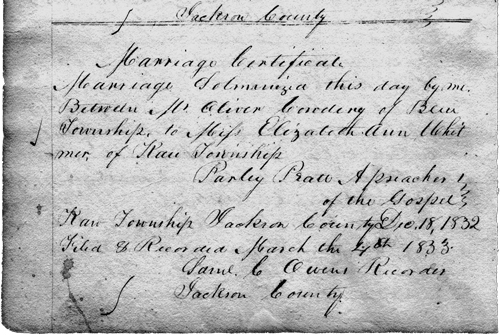 Jackson County
Marriage Certificate
Marriage Solminized this day by me
Between Mr Oliver Cowdery of Blue
Township, to Miss Elizabeth Ann Whit
mer, of Kaw Township
Parley Pratt A preacher
of the Gospel
Kaw Township Jackson County Dec. 18, 1832
Filed & Recorded March the 1833.
Saml. C Owens Recorder
Jackson County